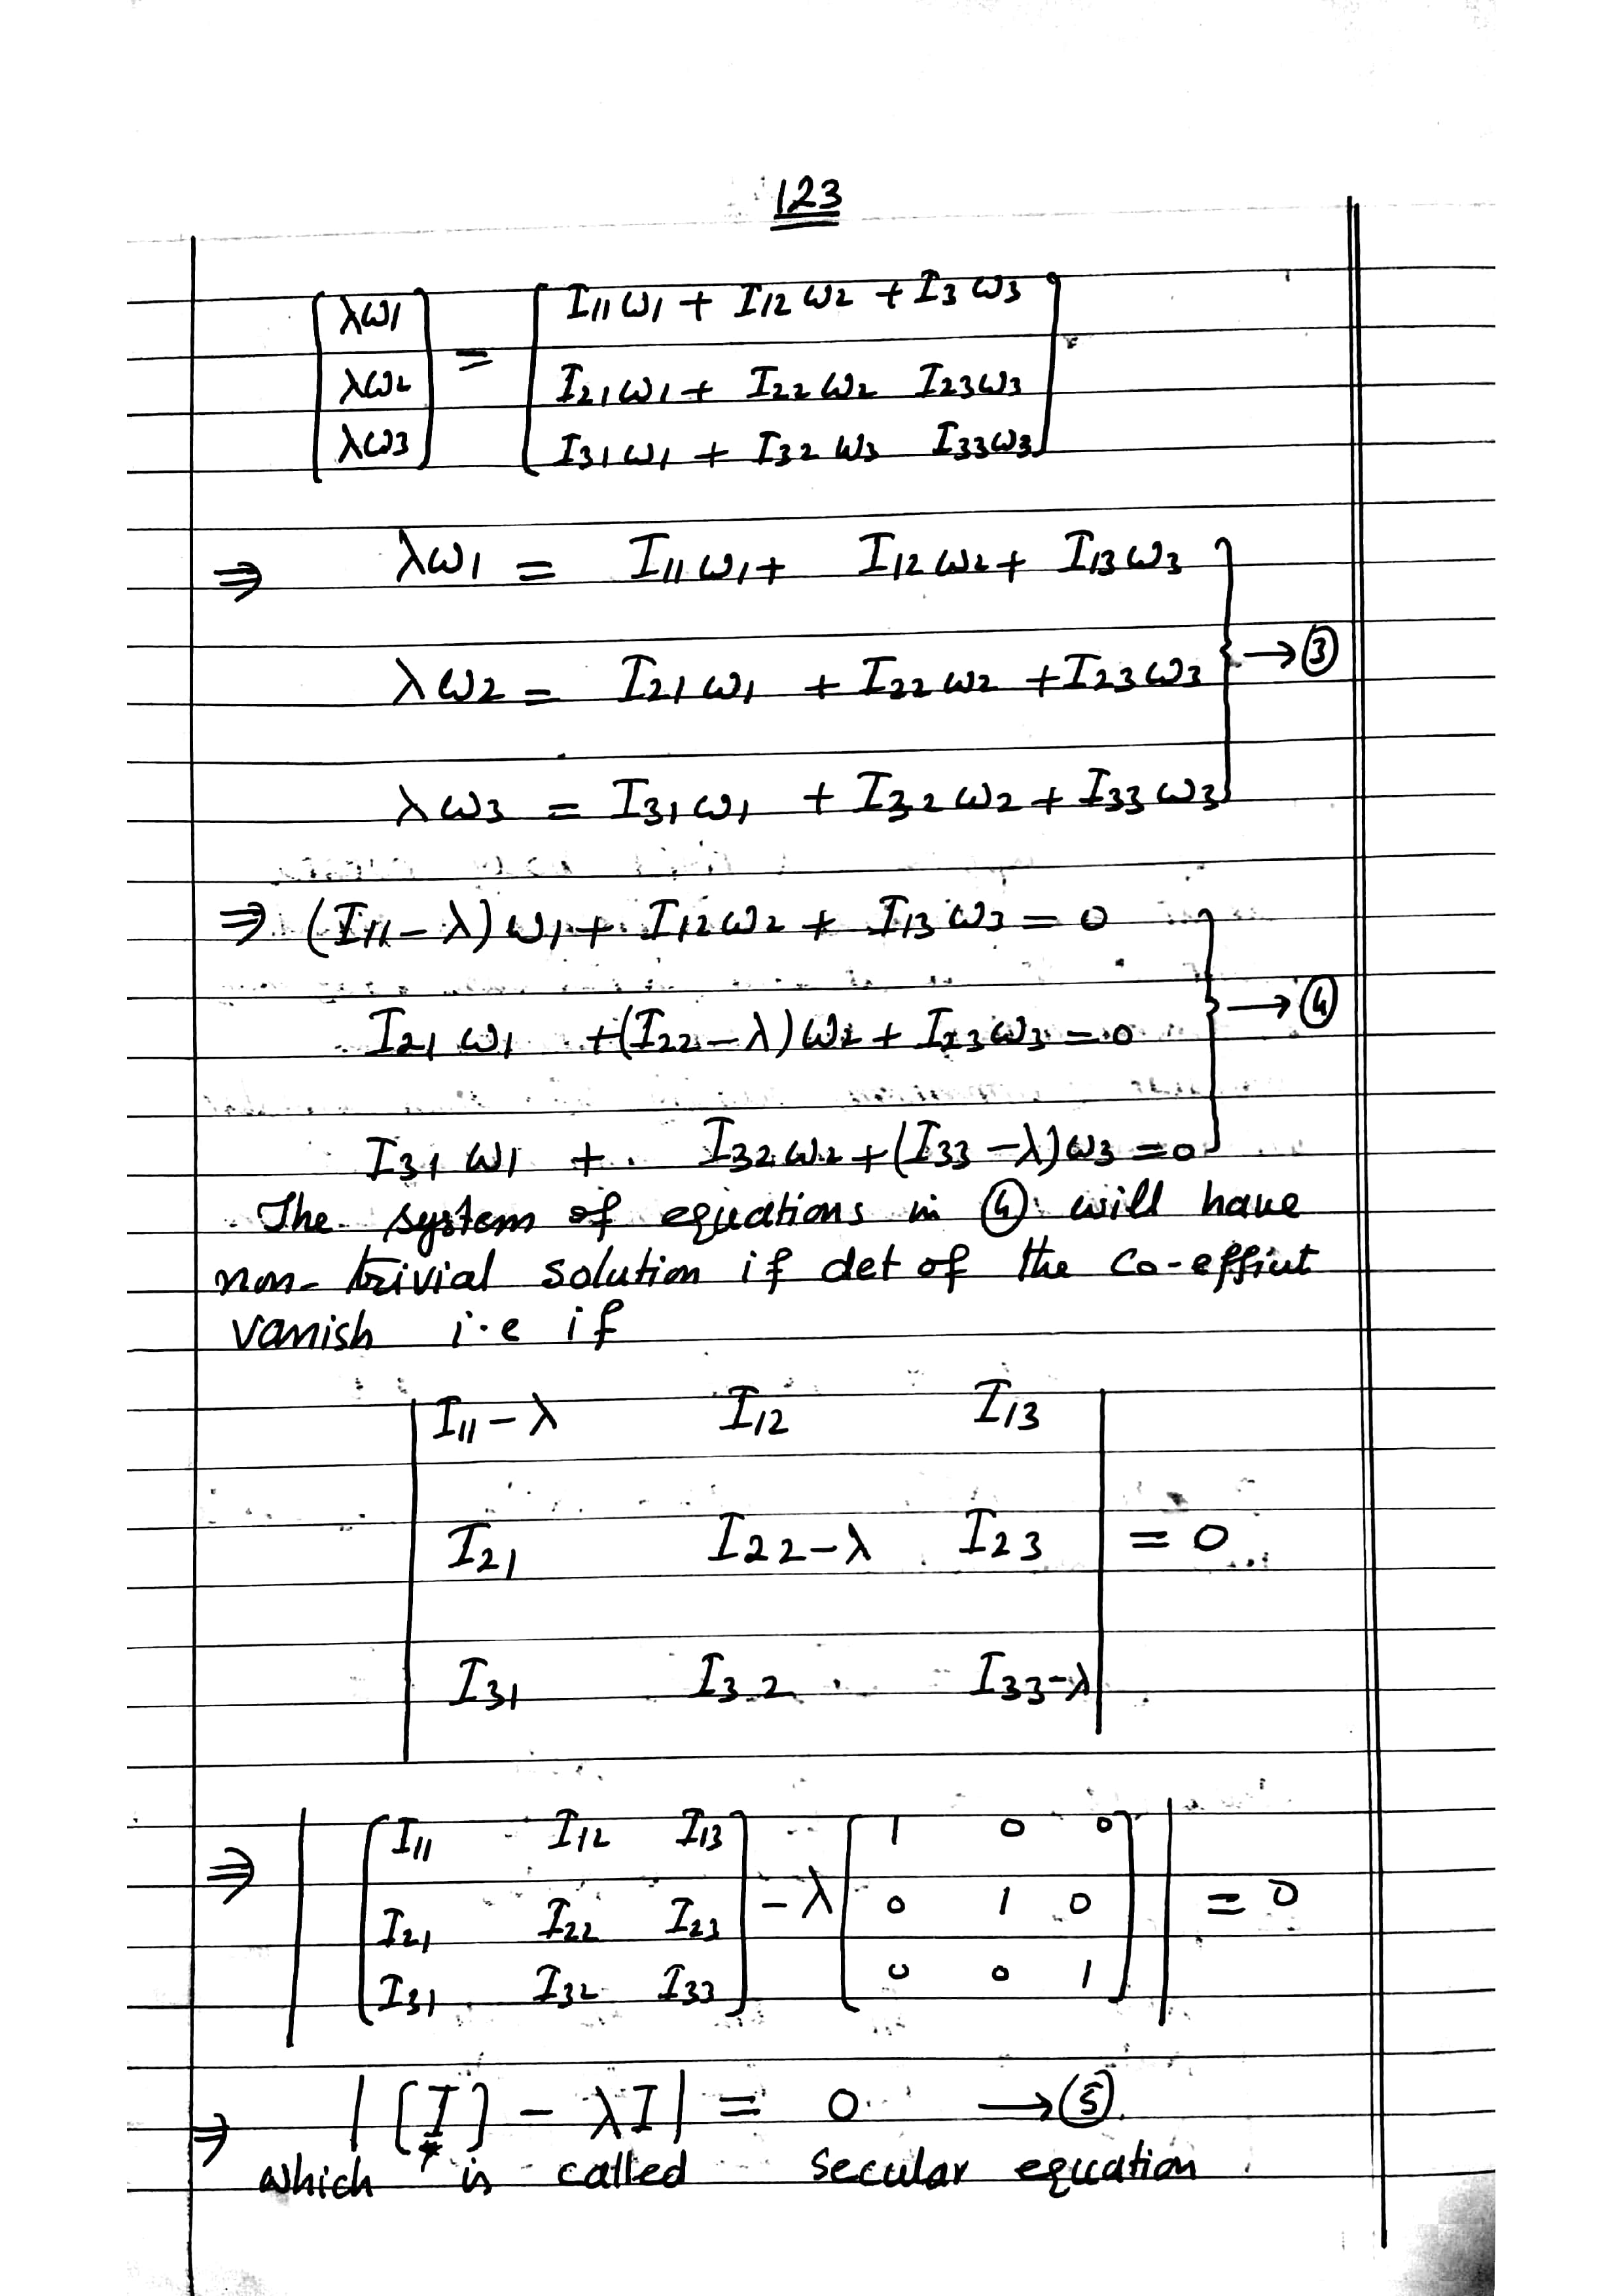 123
[λω1] = [I11 ω1 + I12 ω2 + I3 ω3]
[λω2] [I21 ω1 + I22 ω2 I23 ω3]
[λω3] [I31 ω1 + I32 ω3 I33 ω3]
⇒ λω1 = I11 ω1 + I12 ω2 + I13 ω3
λω2 = I21 ω1 + I22 ω2 + I23 ω3 } → ③
λω3 = I31 ω1 + I32 ω2 + I33 ω3
⇒ (I11 − λ) ω1 + I12 ω2 + I13 ω3 = 0
I21 ω1 + (I22 − λ) ω2 + I23 ω3 = 0 } → ④
I31 ω1 + I32 ω2 + (I33 − λ) ω3 = 0
The system of equations in ④ will have
non-trivial solution if det of the co-effint
vanish i.e if
| I11 − λ I12 I13 |
| I21 I22 − λ I23 | = 0
| I31 I32 I33 − λ |
⇒ | [I11 I12 I13] − λ [1 0 0] | = 0
[I21 I22 I23] [0 1 0]
[I31 I32 I33] [0 0 1]
⇒ | [I] − λI | = 0 → ⑤
which is called secular equation